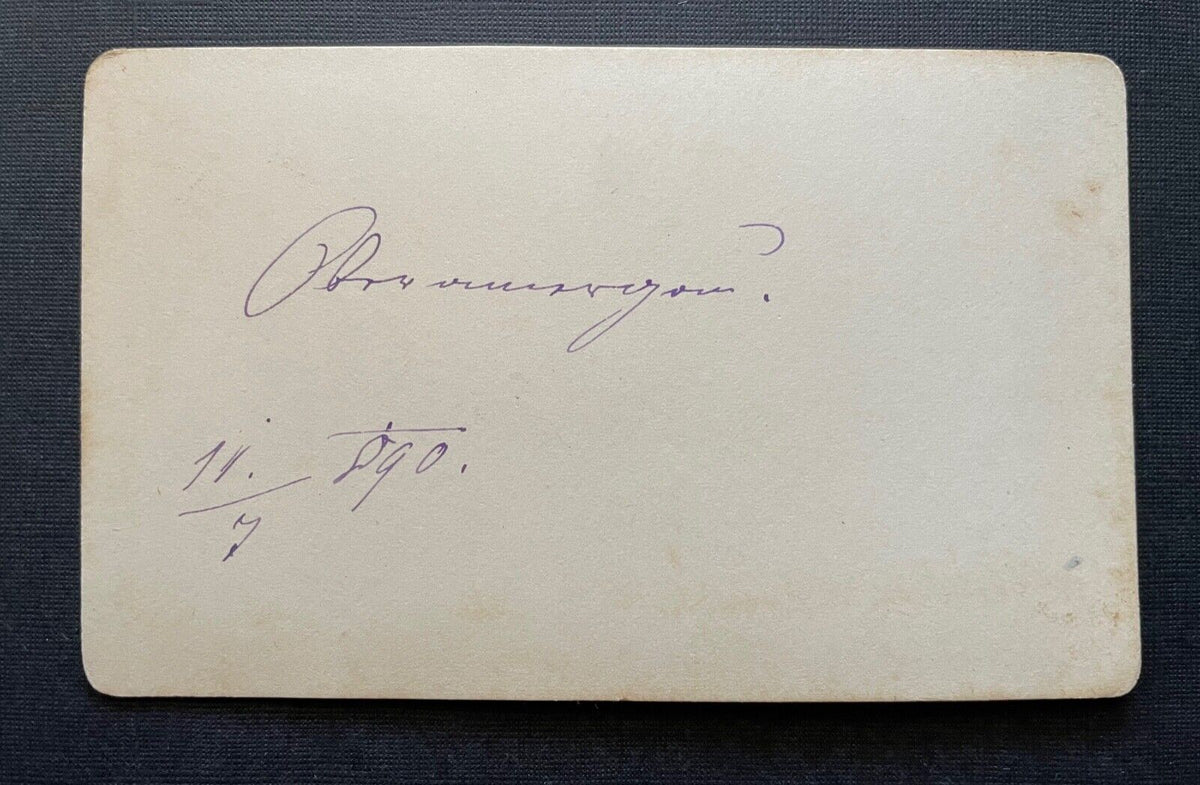 Oberamergau.
11./7 890.